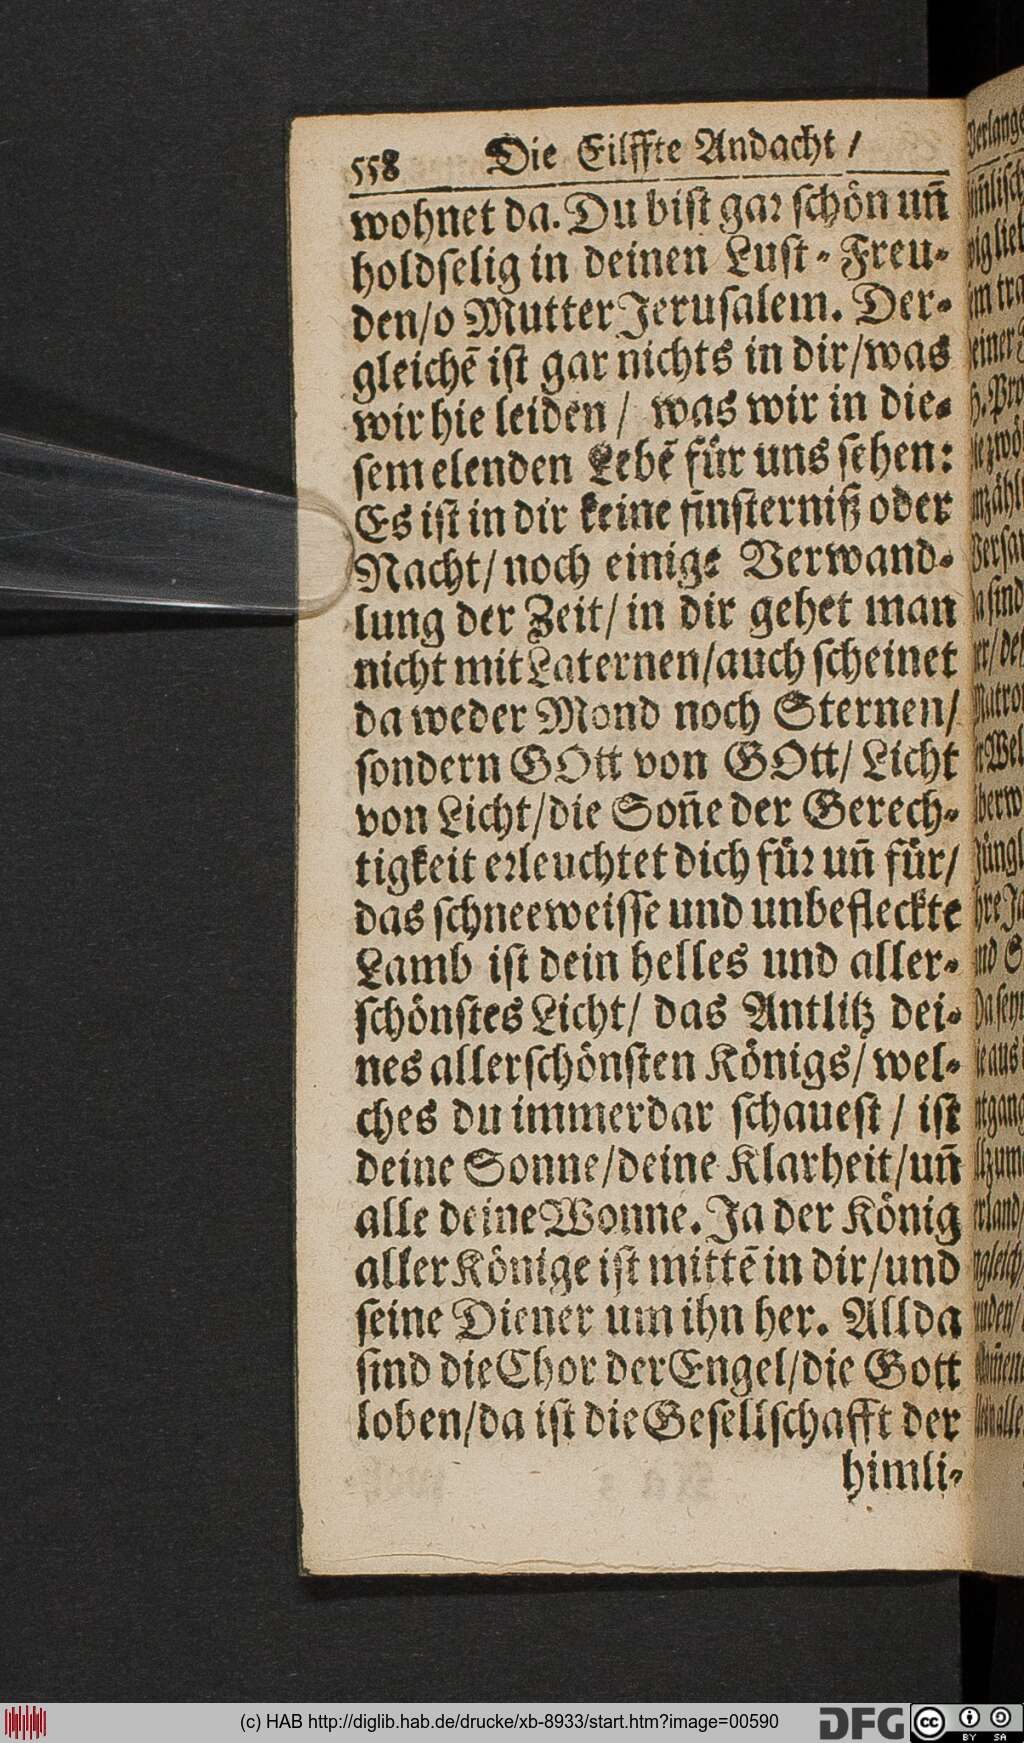 558 Die Eilffte Andacht /
wohnet da. Du bist gar schön uñ
holdselig in deinen Lust - Freu-
den/o Mutter Jerusalem. Der-
gleichẽ ist gar nichts in dir/was
wir hie leiden / was wir in die-
sem elenden Lebẽ für uns sehen:
Es ist in dir keine finsterniß oder
Nacht/ noch einige Verwand-
lung der Zeit/ in dir gehet man
nicht mit Laternen/auch scheinet
da weder Mond noch Sternen/
sondern GOtt von GOtt/ Licht
von Licht/die Soñe der Gerech-
tigkeit erleuchtet dich für uñ für/
das schneeweisse und unbefleckte
Lamb ist dein helles und aller-
schönstes Licht/ das Antlitz dei-
nes allerschönsten Königs/ wel-
ches du immerdar schauest / ist
deine Sonne/deine Klarheit/uñ
alle deine Wonne. Ja der König
aller Könige ist mittẽ in dir/und
seine Diener um ihn her. Allda
sind die Chor der Engel/die Gott
loben/da ist die Gesellschafft der
himli-
(c) HAB http://diglib.hab.de/drucke/xb-8933/start.htm?image=00590
DFG
cc BY SA